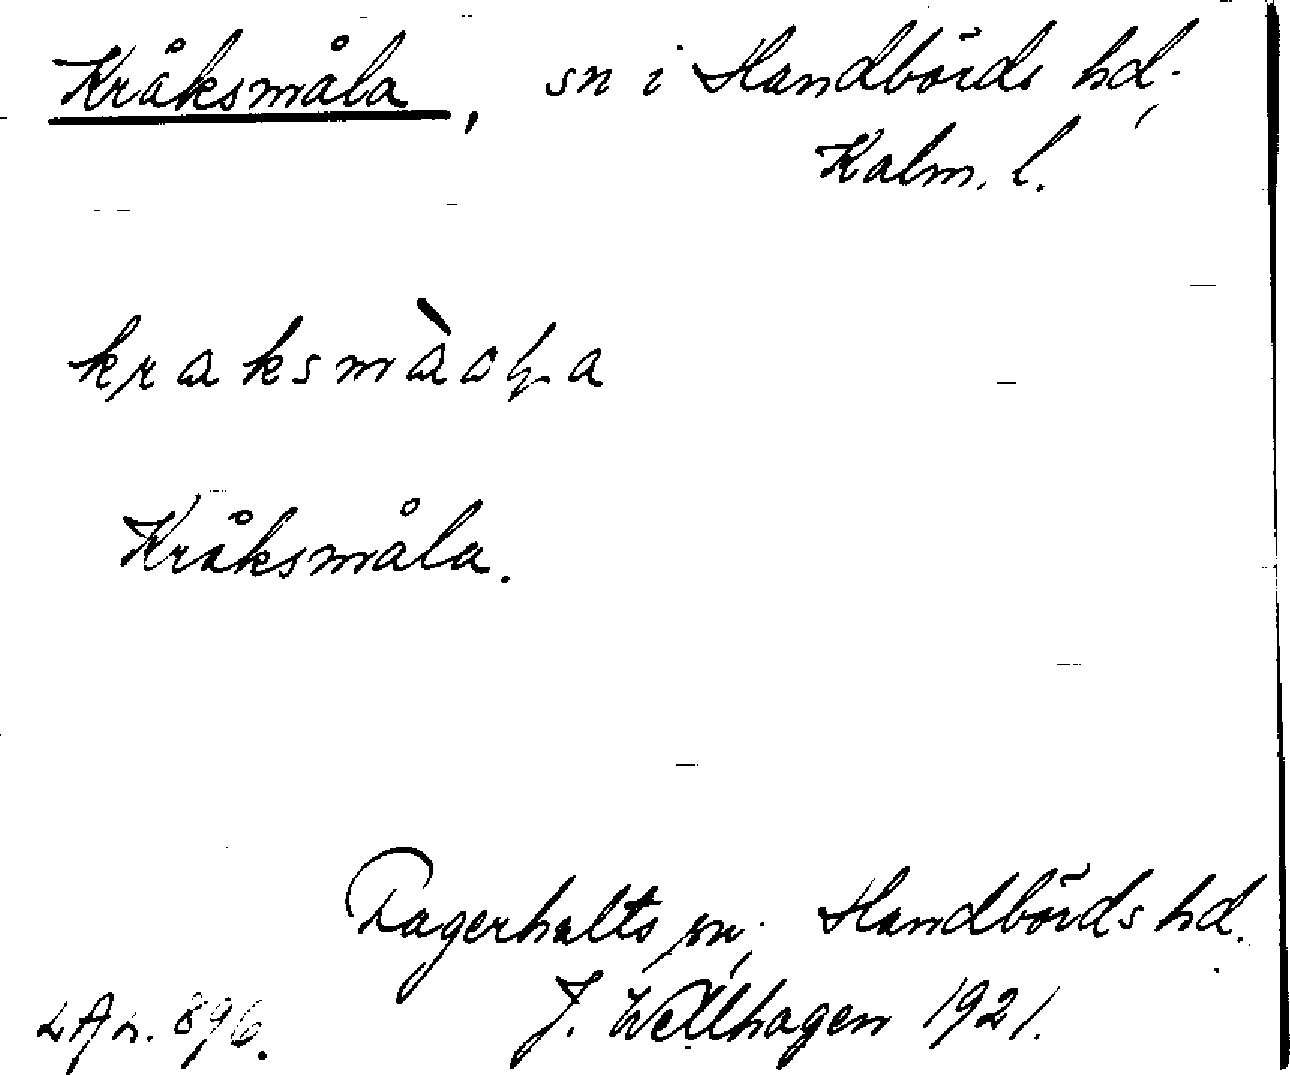 Kråksmåla, sn i Handbörds hd.,
Kalm. l.
kraksmàoꞎa
Kråksmåla.
Fagerhults sn, Handbörds hd.
J. Wellhagen 1921.
LAL. 896.